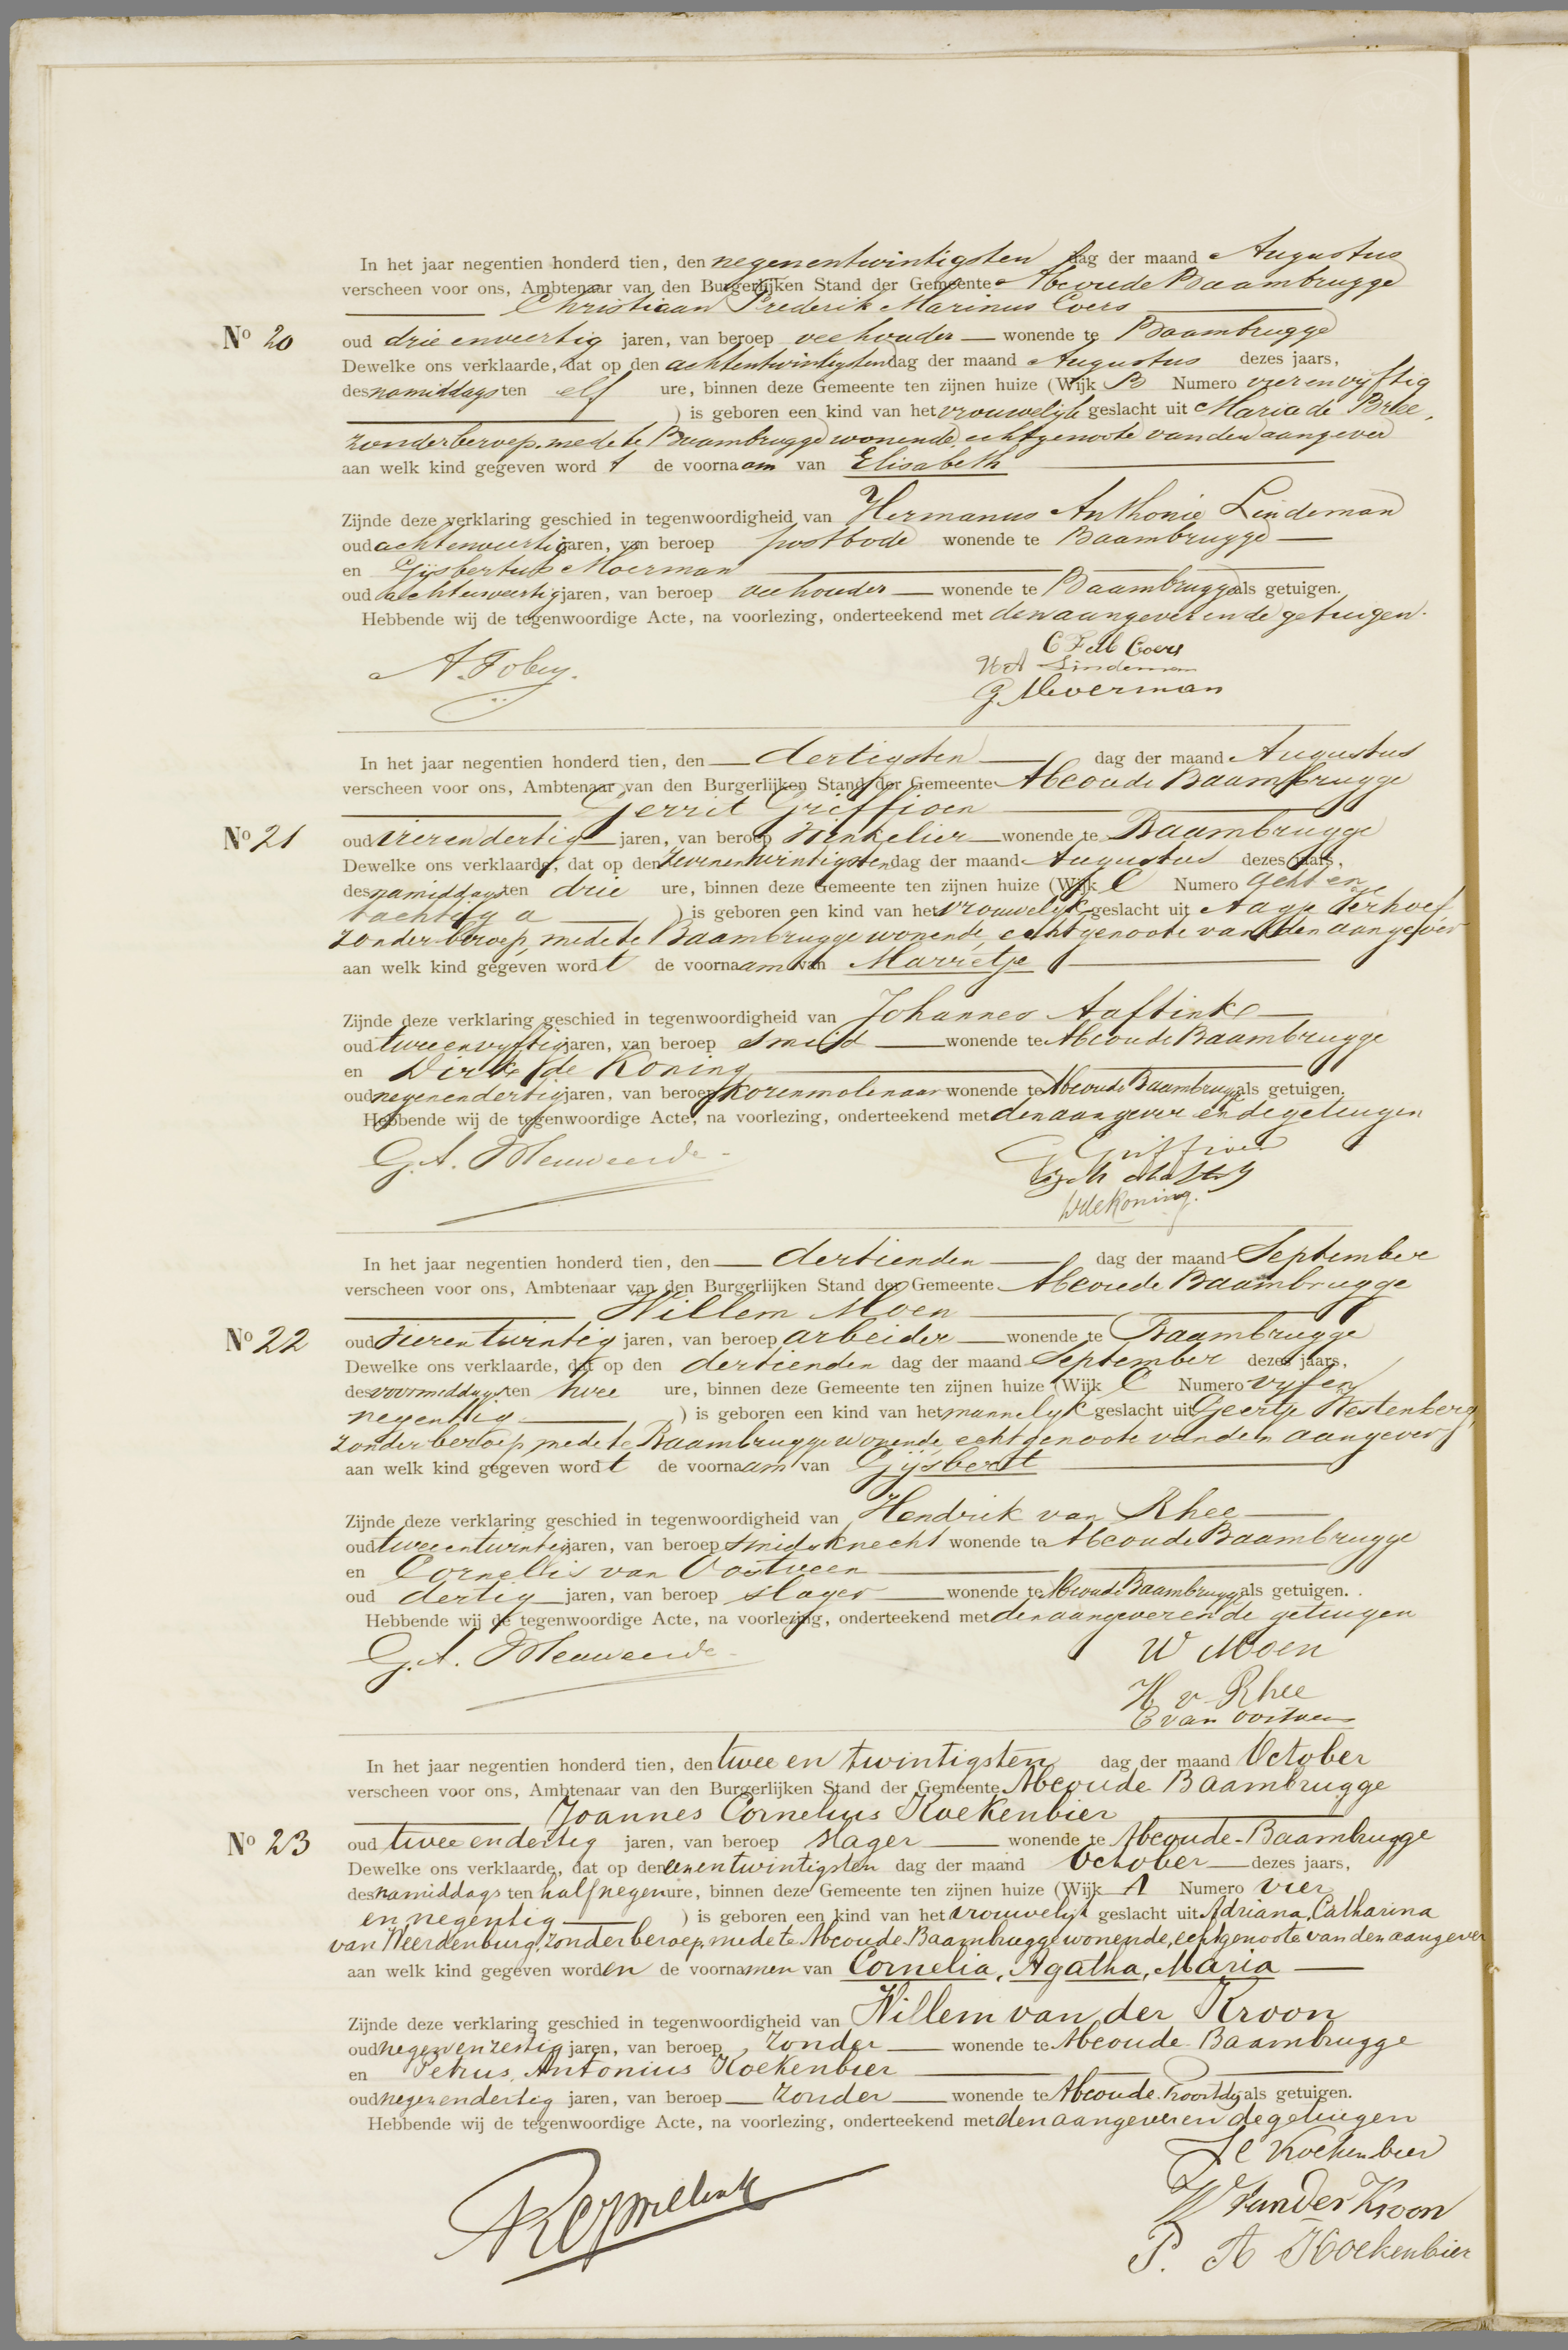 In het jaar negentien honderd tien, den negenentwintigsten dag der maand Augustus
verscheen voor ons, Ambtenaar van den Burgerlijken Stand der Gemeente Abcoude Baambrugge
Christiaan Frederik Marinus Coers
No 20 oud drieenveertig jaren, van beroep veehouder wonende te Baambrugge
Dewelke ons verklaarde, dat op den achtentwintigsten dag der maand Augustus dezes jaars,
des namiddags ten elf ure, binnen deze Gemeente ten zijnen huize (Wijk B Numero vierenvyftig
) is geboren een kind van het vrouwelijk geslacht uit Maria de Bree,
zonder beroep, mede te Baambrugge wonende, echtgenoote van den aangever
aan welk kind gegeven word t de voornaam van Elisabeth
Zijnde deze verklaring geschied in tegenwoordigheid van Hermanus Anthonie Lindeman
oud achtenveertig jaren, van beroep postbode wonende te Baambrugge
en Gijsbertus Moerman
oud achtenveertig jaren, van beroep veehouder wonende te Baambrugge als getuigen.
Hebbende wij de tegenwoordige Acte, na voorlezing, onderteekend met den aangever en de getuigen.
C F M Coers
A. Fobey. H A Lindeman
G Moerman
In het jaar negentien honderd tien, den dertigsten dag der maand Augustus
verscheen voor ons, Ambtenaar van den Burgerlijken Stand der Gemeente Abcoude Baambrugge
Gerrit Griffioen
No 21 oud vierendertig jaren, van beroep winkelier wonende te Baambrugge
Dewelke ons verklaarde, dat op den zevenentwintigsten dag der maand Augustus dezes jaars,
des namiddags ten drie ure, binnen deze Gemeente ten zijnen huize (Wijk C Numero acht en
tachtig a ) is geboren een kind van het vrouwelyk geslacht uit Aagje Verhoef
zonder beroep, mede te Baambrugge wonende, echtgenoote van den aangever
aan welk kind gegeven word t de voornaam van Marretje
Zijnde deze verklaring geschied in tegenwoordigheid van Johannes Aaftink
oud tweeenvyftig jaren, van beroep smid wonende te Abcoude Baambrugge
en Dirk de Koning
oud negenendertig jaren, van beroep korenmolenaar wonende te Abcoude Baambrugge als getuigen.
Hebbende wij de tegenwoordige Acte, na voorlezing, onderteekend met den aangever en de getuigen
G.A. G Griffioen
de Koning.
In het jaar negentien honderd tien, den dertienden dag der maand September
verscheen voor ons, Ambtenaar van den Burgerlijken Stand der Gemeente Abcoude Baambrugge
Willem Moen
No 22 oud vierentwintig jaren, van beroep arbeider wonende te Baambrugge
Dewelke ons verklaarde, dat op den dertienden dag der maand September dezes jaars,
des voormiddags ten twee ure, binnen deze Gemeente ten zijnen huize (Wijk C Numero vyfen
negentig ) is geboren een kind van het mannelyk geslacht uit Geertje Westenberg
zonder beroep mede te Baambrugge wonende echtgenoote van den aangever
aan welk kind gegeven word t de voornaam van Gijsbert
Zijnde deze verklaring geschied in tegenwoordigheid van Hendrik van Rhee
oud tweeentwintig jaren, van beroep smidsknecht wonende te Abcoude Baambrugge
en Cornelis van Oostveen
oud dertig jaren, van beroep slager wonende te Abcoude Baambrugge als getuigen.
Hebbende wij de tegenwoordige Acte, na voorlezing, onderteekend met den aangever en de getuigen
G.A. W Moen
H v Rhee
C van Oostveen
In het jaar negentien honderd tien, den twee en twintigsten dag der maand October
verscheen voor ons, Ambtenaar van den Burgerlijken Stand der Gemeente Abcoude Baambrugge
Joannes Cornelius Koekenbier
No 23 oud twee endertig jaren, van beroep slager wonende te Abcoude-Baambrugge
Dewelke ons verklaarde, dat op den eenentwintigsten dag der maand October dezes jaars,
des namiddags ten half negen ure, binnen deze Gemeente ten zijnen huize (Wijk A Numero vier
en negentig ) is geboren een kind van het vrouwelijk geslacht uit Adriana, Catharina
van Weerdenburg, zonder beroep, mede te Abcoude-Baambrugge wonende, echtgenoote van den aangever
aan welk kind gegeven worden de voornamen van Cornelia, Agatha, Maria
Zijnde deze verklaring geschied in tegenwoordigheid van Willem van der Kroon
oud negenenzestig jaren, van beroep zonder wonende te Abcoude Baambrugge
en Petrus, Antonius Koekenbier
oud negenendertig jaren, van beroep zonder wonende te Abcoude-Proostdy als getuigen.
Hebbende wij de tegenwoordige Acte, na voorlezing, onderteekend met den aangever en de getuigen
J C Koekenbier
W van der Kroon
P. A Koekenbier